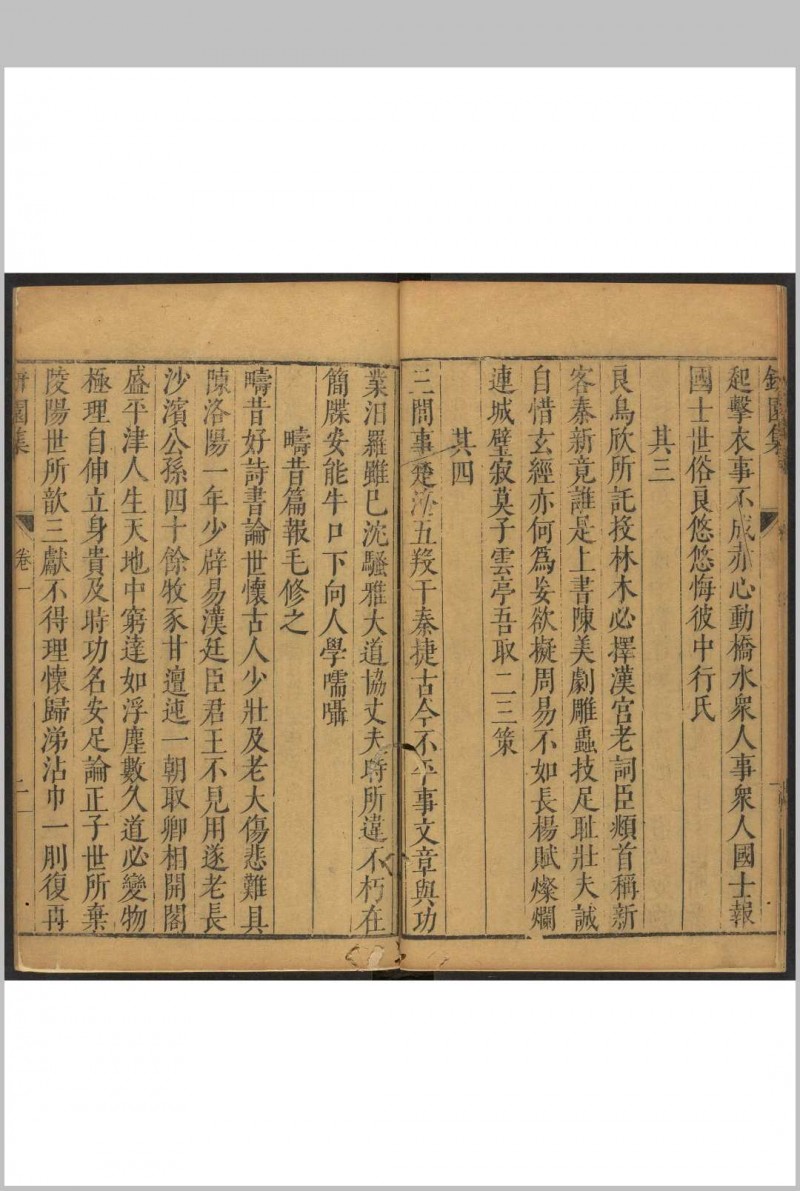 起擊衣事不成赤心動橋水衆人事衆人國士報
國士世俗良悠悠悔彼中行氏
其三
良鳥欣所託投林木必擇漢官老詞臣頫首稱新
客秦新竟誰是上書陳美劇雕蟲技足耻壯夫誠
自惜玄經亦何爲妄欲擬周易不如長楊賦燦爛
連城璧寂莫子雲亭吾取二三策
其四
三閭事楚濟五羖干秦捷古今不乎事文章與功
業汨羅雖已沈騷雅大道協丈夫時所違不朽在
簡牒安能牛口下向人學嚅囁
疇昔篇報毛修之
疇昔好詩書論世懷古人少壯及老大傷悲難具
陳洛陽一年少辟易漢廷臣君王不見用遂老長
沙濱公孫四十餘牧豕甘邅迍一朝取卿相開閣
盛平津人生天地中窮達如浮塵數久道必變物
極理自伸立身貴及時功名安足論正子世所棄
陵陽世所歆三獻不得理懷歸涕沾巾一刖復再
園集
卷一